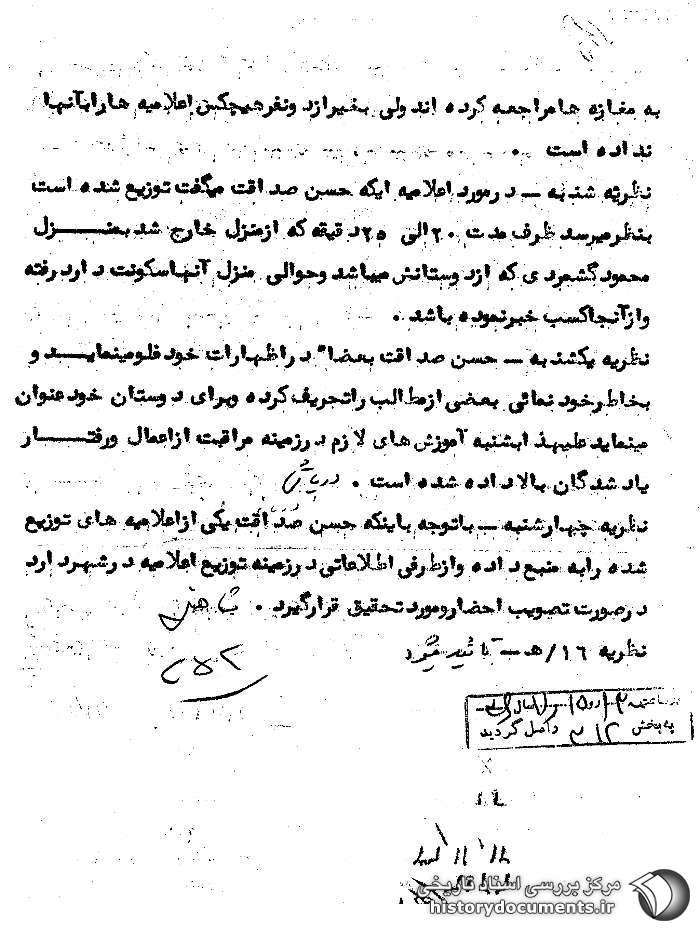 به مغازه ها مراجعه کرده اند ولی بغیر از دونفر هیچکس اعلامیه ها را بآنها
نداده است .
نظریه شنبه – در مورد اعلامیه ایکه حسن صداقت میگفت توزیع شده است
بنظر میرسد ظرف مدت ۲۰ الی ۲۵ دقیقه که از منزل خارج شد بمنزل
محمود گشمردی که از دوستانش میباشد و حوالی منزل آنها سکونت دارد رفته
و از آنجا کسب خبر نموده باشد .
نظریه یکشنبه – حسن صداقت بعضا" در اظهارات خود غلو مینماید و
بخاطر خود نمائی بعضی از مطالب را تحریف کرده و برای دوستان خود عنوان
مینماید علیهذا بشنبه آموزش های لازم در زمینه مراقبت از اعمال و رفتار
یاد شدگان بالا داده شده است .
نظریه چهارشنبه – با توجه باینکه حسن صداقت یکی از اعلامیه های توزیع
شده را به منبع داده و از طرفی اطلاعاتی در زمینه توزیع اعلامیه در شهر دارد
در صورت تصویب احضار و مورد تحقیق قرار گیرد .
نظریه ۱۶/ه – تائید میگردد
به بخش ۳۱۲ واصل گردید
مرکز بررسی اسناد تاریخی
historydocuments.ir